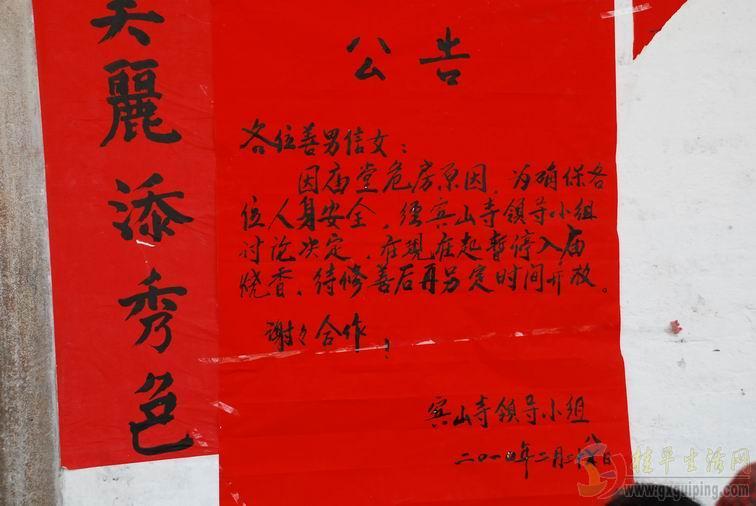 美麗添秀色
公告
各位善男信女：
因庙堂危房原因，为确保各
位人身安全，经宾山寺领导小组
讨论决定，在現在起暫停入庙
烧香，待修善后再另定时间开放。
谢々合作！
宾山寺领导小组
二〇一〇年二月二十八日
桂平生活网
www.gxguiping.com